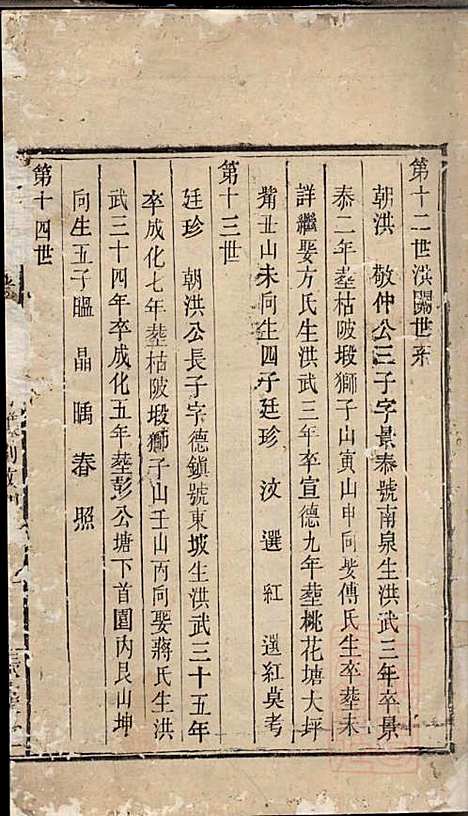 第十二世洪關世系
朝洪　敬仲公三子字景泰號南泉生洪武三年卒景
泰二年塟枯陂塅獅子山寅山申向娶傅氏生卒塟未
詳繼娶方氏生洪武三年卒宣德九年塟桃花塘大坪
觜丑山未向生四子廷珍　汶　選　紅　選紅莫考
第十三世
廷珍　朝洪公長子字德鎮號東坡生洪武三十五年
卒成化七年塟枯陂塅獅子山壬山丙向娶蔣氏生洪
武三十四年卒成化五年塟彭公塘下首園內艮山坤
向生五子昷　晶　暊　春　照
第十四世